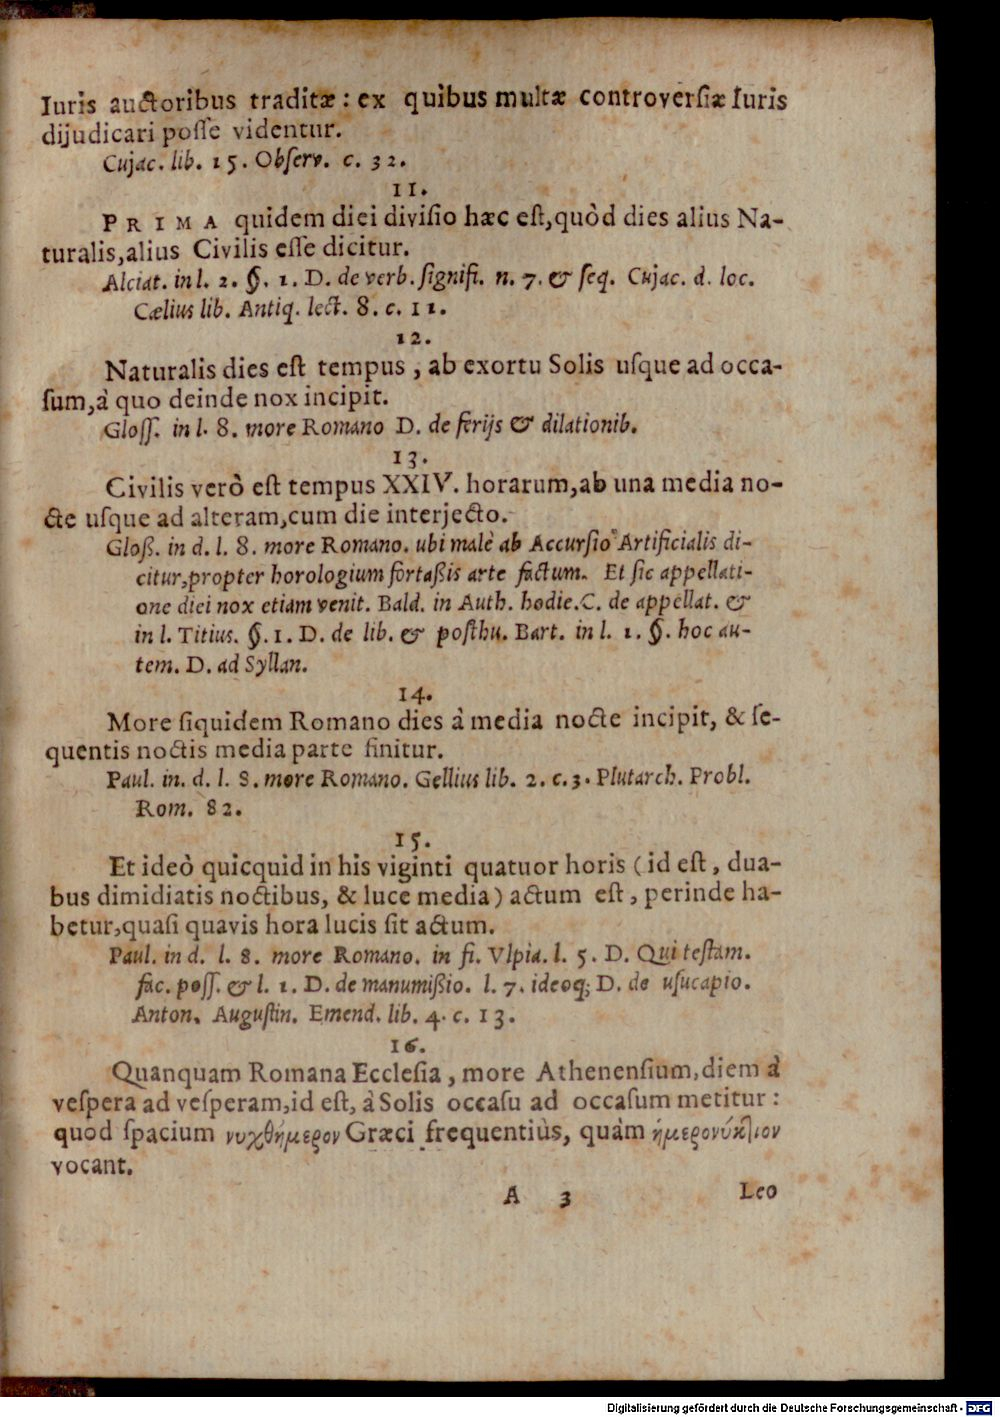 Iuris auctoribus traditæ : ex quibus multæ controversiæ Iuris
dijudicari posse videntur.
Cujac. lib. 15. Observ. c. 32.
11.
PRIMA quidem diei divisio hæc est, quòd dies alius Na-
turalis, alius Civilis esse dicitur.
Alciat. in l. 2. §. 1. D. de verb. signifi. n. 7. & seq. Cujac. d. loc.
Cælius lib. Antiq. lect. 8. c. 11.
12.
Naturalis dies est tempus, ab exortu Solis usque ad occa-
sum, à quo deinde nox incipit.
Gloss. in l. 8. more Romano D. de ferijs & dilationib.
13.
Civilis verò est tempus XXIV. horarum, ab una media no-
cte usque ad alteram, cum die interjecto.
Gloß. in d. l. 8. more Romano. ubi malè ab Accursio Artificialis di-
citur, propter horologium fortaßis arte factum. Et sic appellati-
one diei nox etiam venit. Bald. in Auth. hodie. C. de appellat. &
in l. Titius. §. 1. D. de lib. & posthu. Bart. in l. 1. §. hoc au-
tem. D. ad Syllan.
14.
More siquidem Romano dies à media nocte incipit, & se-
quentis noctis media parte finitur.
Paul. in. d. l. 8. more Romano. Gellius lib. 2. c. 3. Plutarch. Probl.
Rom. 82.
15.
Et ideò quicquid in his viginti quatuor horis (id est, dua-
bus dimidiatis noctibus, & luce media) actum est, perinde ha-
betur, quasi quavis hora lucis sit actum.
Paul. in d. l. 8. more Romano. in fi. Vlpia. l. 5. D. Qui testam.
fac. poss. & l. 1. D. de manumißio. l. 7. ideoq; D. de usucapio.
Anton. Augustin. Emend. lib. 4. c. 13.
16.
Quanquam Romana Ecclesia, more Atheniensium, diem à
vespera ad vesperam, id est, à Solis occasu ad occasum metitur :
quod spacium νυχθήμερον Græci frequentiùs, quàm ἡμερονύκτιον
vocant.
A 3 Leo
Digitalisierung gefördert durch die Deutsche Forschungsgemeinschaft - DFG